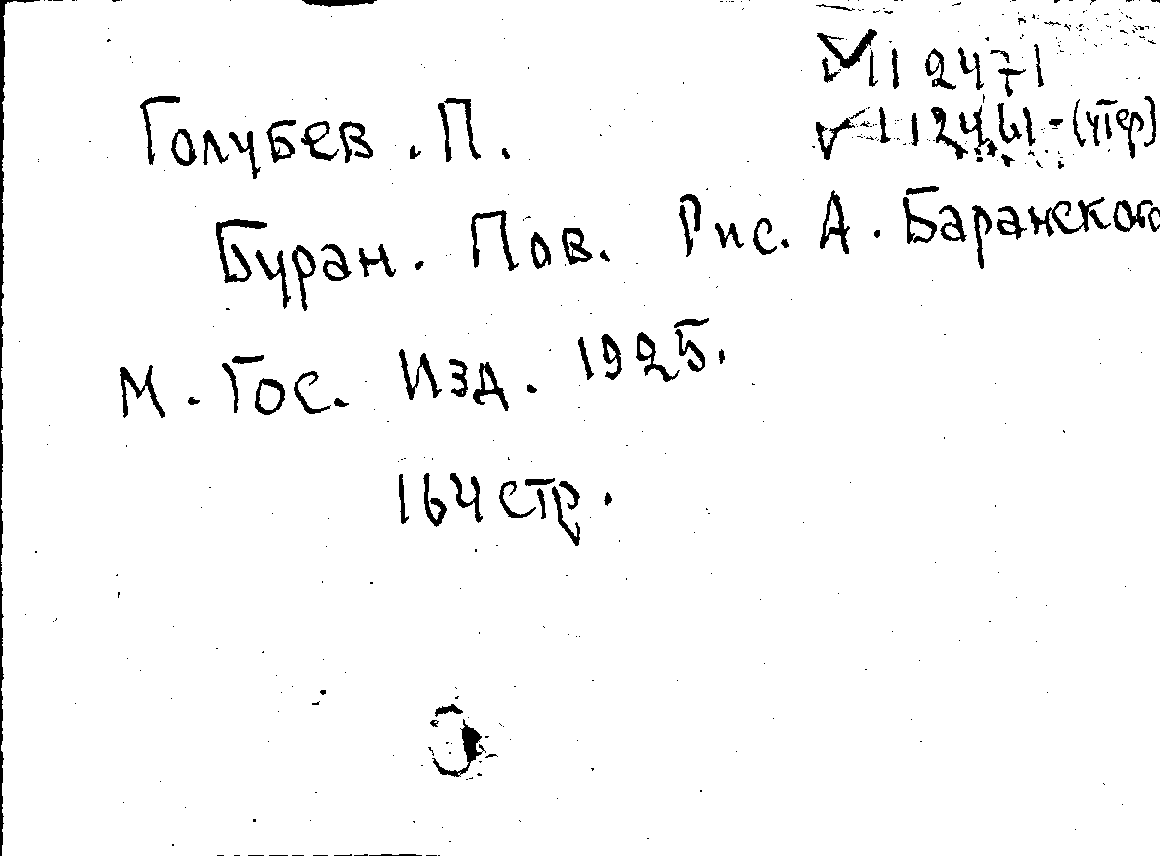 112471
Голубев. П.
112461-(утер)
Буран. Пов. Рис. А. Баранского
М. Гос. Изд. 1925.
164 стр.